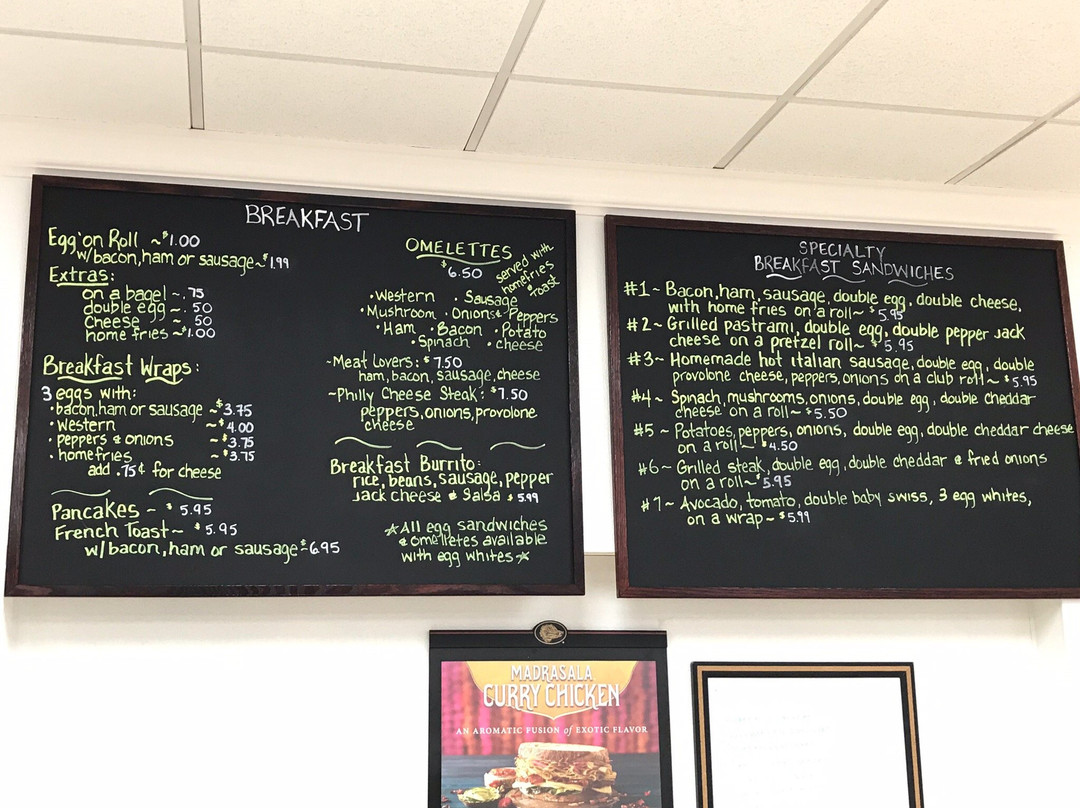 BREAKFAST
Egg on Roll ~ $1.00
w/bacon, ham or sausage ~ $1.99
Extras:
on a bagel ~ .75
double egg ~ .50
Cheese ~ .50
home fries ~ 1.00
Breakfast Wraps:
3 eggs with:
• bacon, ham or sausage ~ $3.75
• western ~ $4.00
• peppers & onions ~ $3.75
• homefries ~ $3.75
add .75¢ for cheese
Pancakes ~ $5.95
French Toast ~ $5.95
w/bacon, ham or sausage ~ $6.95
OMELETTES
$6.50
served with
homefries
& Toast
• Western • Sausage
• Mushroom • Onions & Peppers
• Ham • Bacon • Potato
• Spinach • cheese
~ Meat Lovers: $7.50
ham, bacon, sausage, cheese
~ Philly Cheese Steak: $7.50
peppers, onions, provolone
cheese
Breakfast Burrito:
rice, beans, sausage, pepper
Jack cheese & Salsa $5.99
*All egg sandwiches
& omelletes available
with egg whites*
SPECIALTY
BREAKFAST SANDWICHES
#1 ~ Bacon, ham, sausage, double egg, double cheese,
with home fries on a roll ~ $5.95
#2 ~ Grilled pastrami, double egg, double pepper jack
cheese on a pretzel roll ~ $5.95
#3 ~ Homemade hot italian sausage, double egg, double
provolone cheese, peppers, onions on a club roll ~ $5.95
#4 ~ Spinach, mushrooms, onions, double egg, double cheddar
cheese on a roll ~ $5.50
#5 ~ Potatoes, peppers, onions, double egg, double cheddar cheese
on a roll ~ $4.50
#6 ~ Grilled steak, double egg, double cheddar & fried onions
on a roll ~ $5.95
#7 ~ Avocado, tomato, double baby swiss, 3 egg whites,
on a wrap ~ $5.99
MADRASALA
CURRY CHICKEN
AN AROMATIC FUSION of EXOTIC FLAVOR